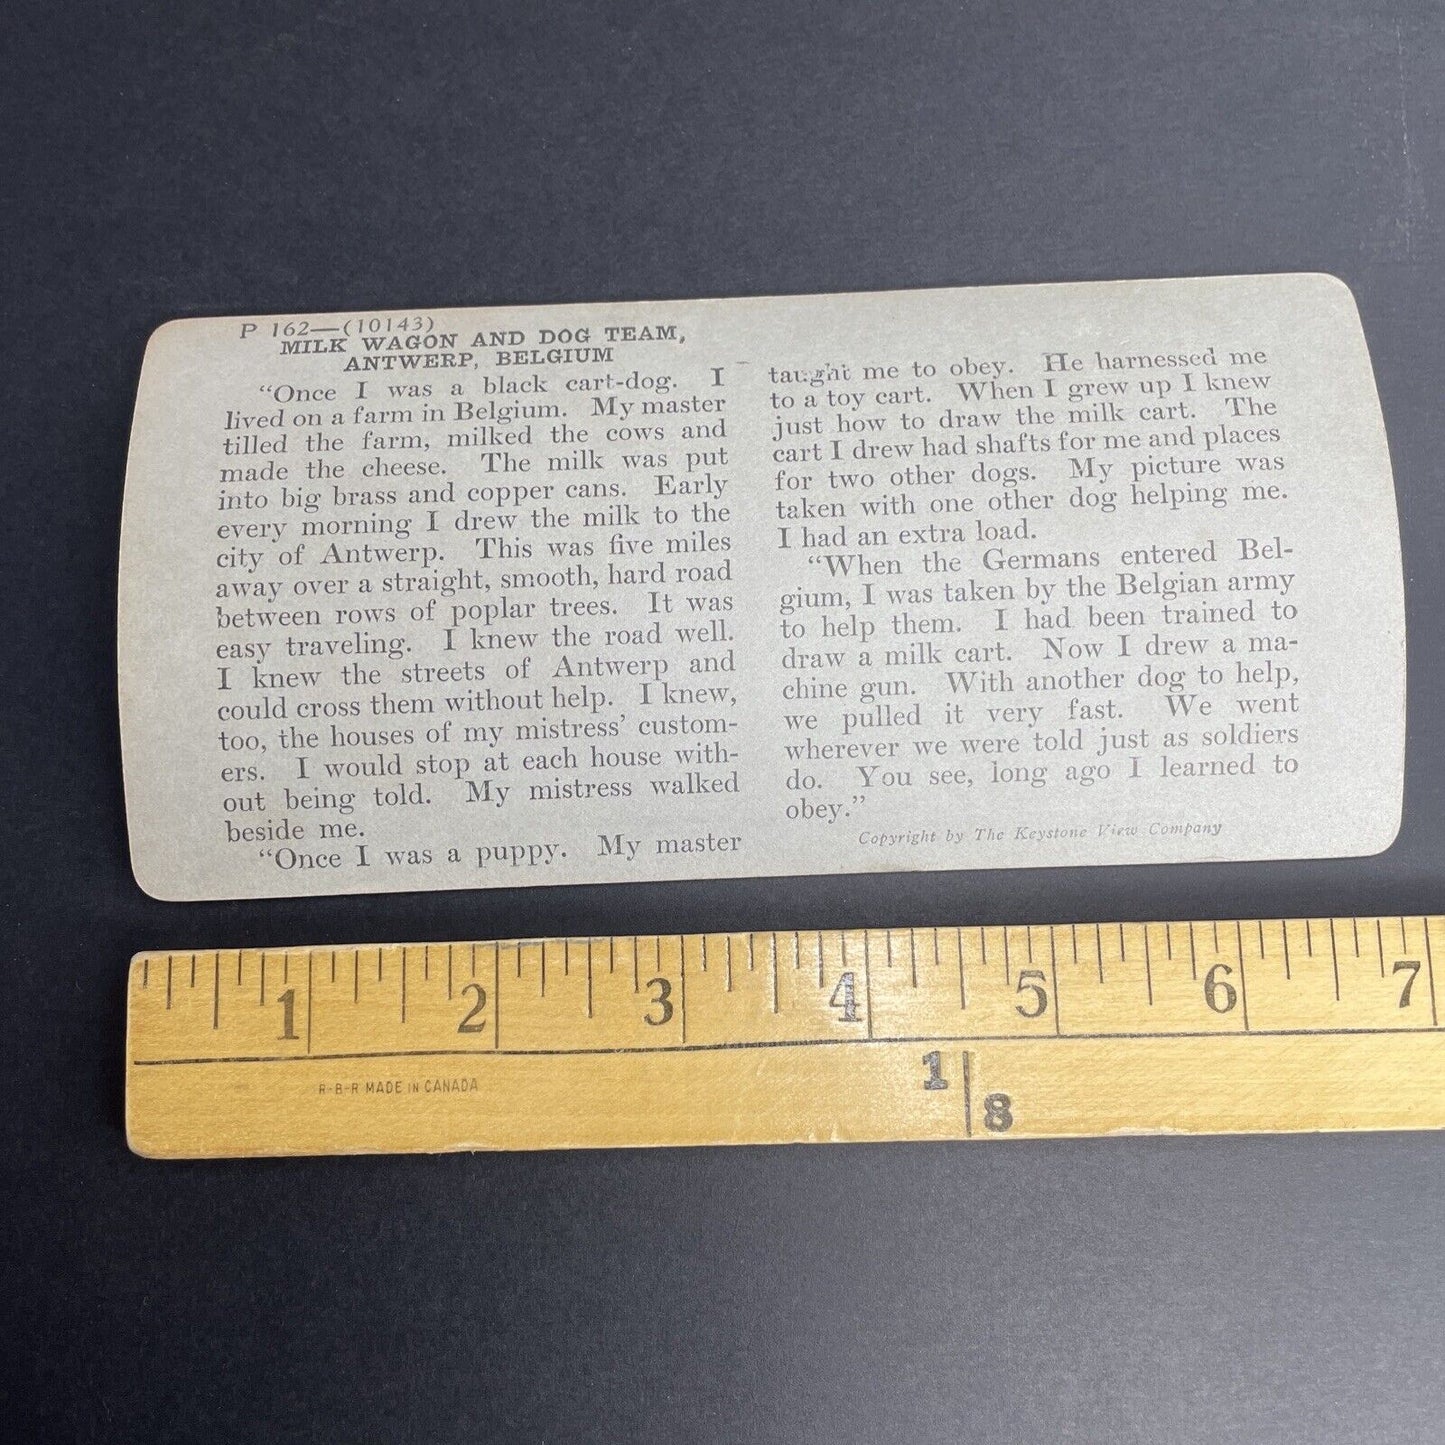 P 162—(10143)
MILK WAGON AND DOG TEAM,
ANTWERP, BELGIUM
"Once I was a black cart-dog. I
lived on a farm in Belgium. My master
tilled the farm, milked the cows and
made the cheese. The milk was put
into big brass and copper cans. Early
every morning I drew the milk to the
city of Antwerp. This was five miles
away over a straight, smooth, hard road
between rows of poplar trees. It was
easy traveling. I knew the road well.
I knew the streets of Antwerp and
could cross them without help. I knew,
too, the houses of my mistress' custom-
ers. I would stop at each house with-
out being told. My mistress walked
beside me.
"Once I was a puppy. My master
taught me to obey. He harnessed me
to a toy cart. When I grew up I knew
just how to draw the milk cart. The
cart I drew had shafts for me and places
for two other dogs. My picture was
taken with one other dog helping me.
I had an extra load.
"When the Germans entered Bel-
gium, I was taken by the Belgian army
to help them. I had been trained to
draw a milk cart. Now I drew a ma-
chine gun. With another dog to help,
we pulled it very fast. We went
wherever we were told just as soldiers
do. You see, long ago I learned to
obey."
Copyright by The Keystone View Company
1 2 3 4 5 6 7
R-B-R MADE IN CANADA
1
8